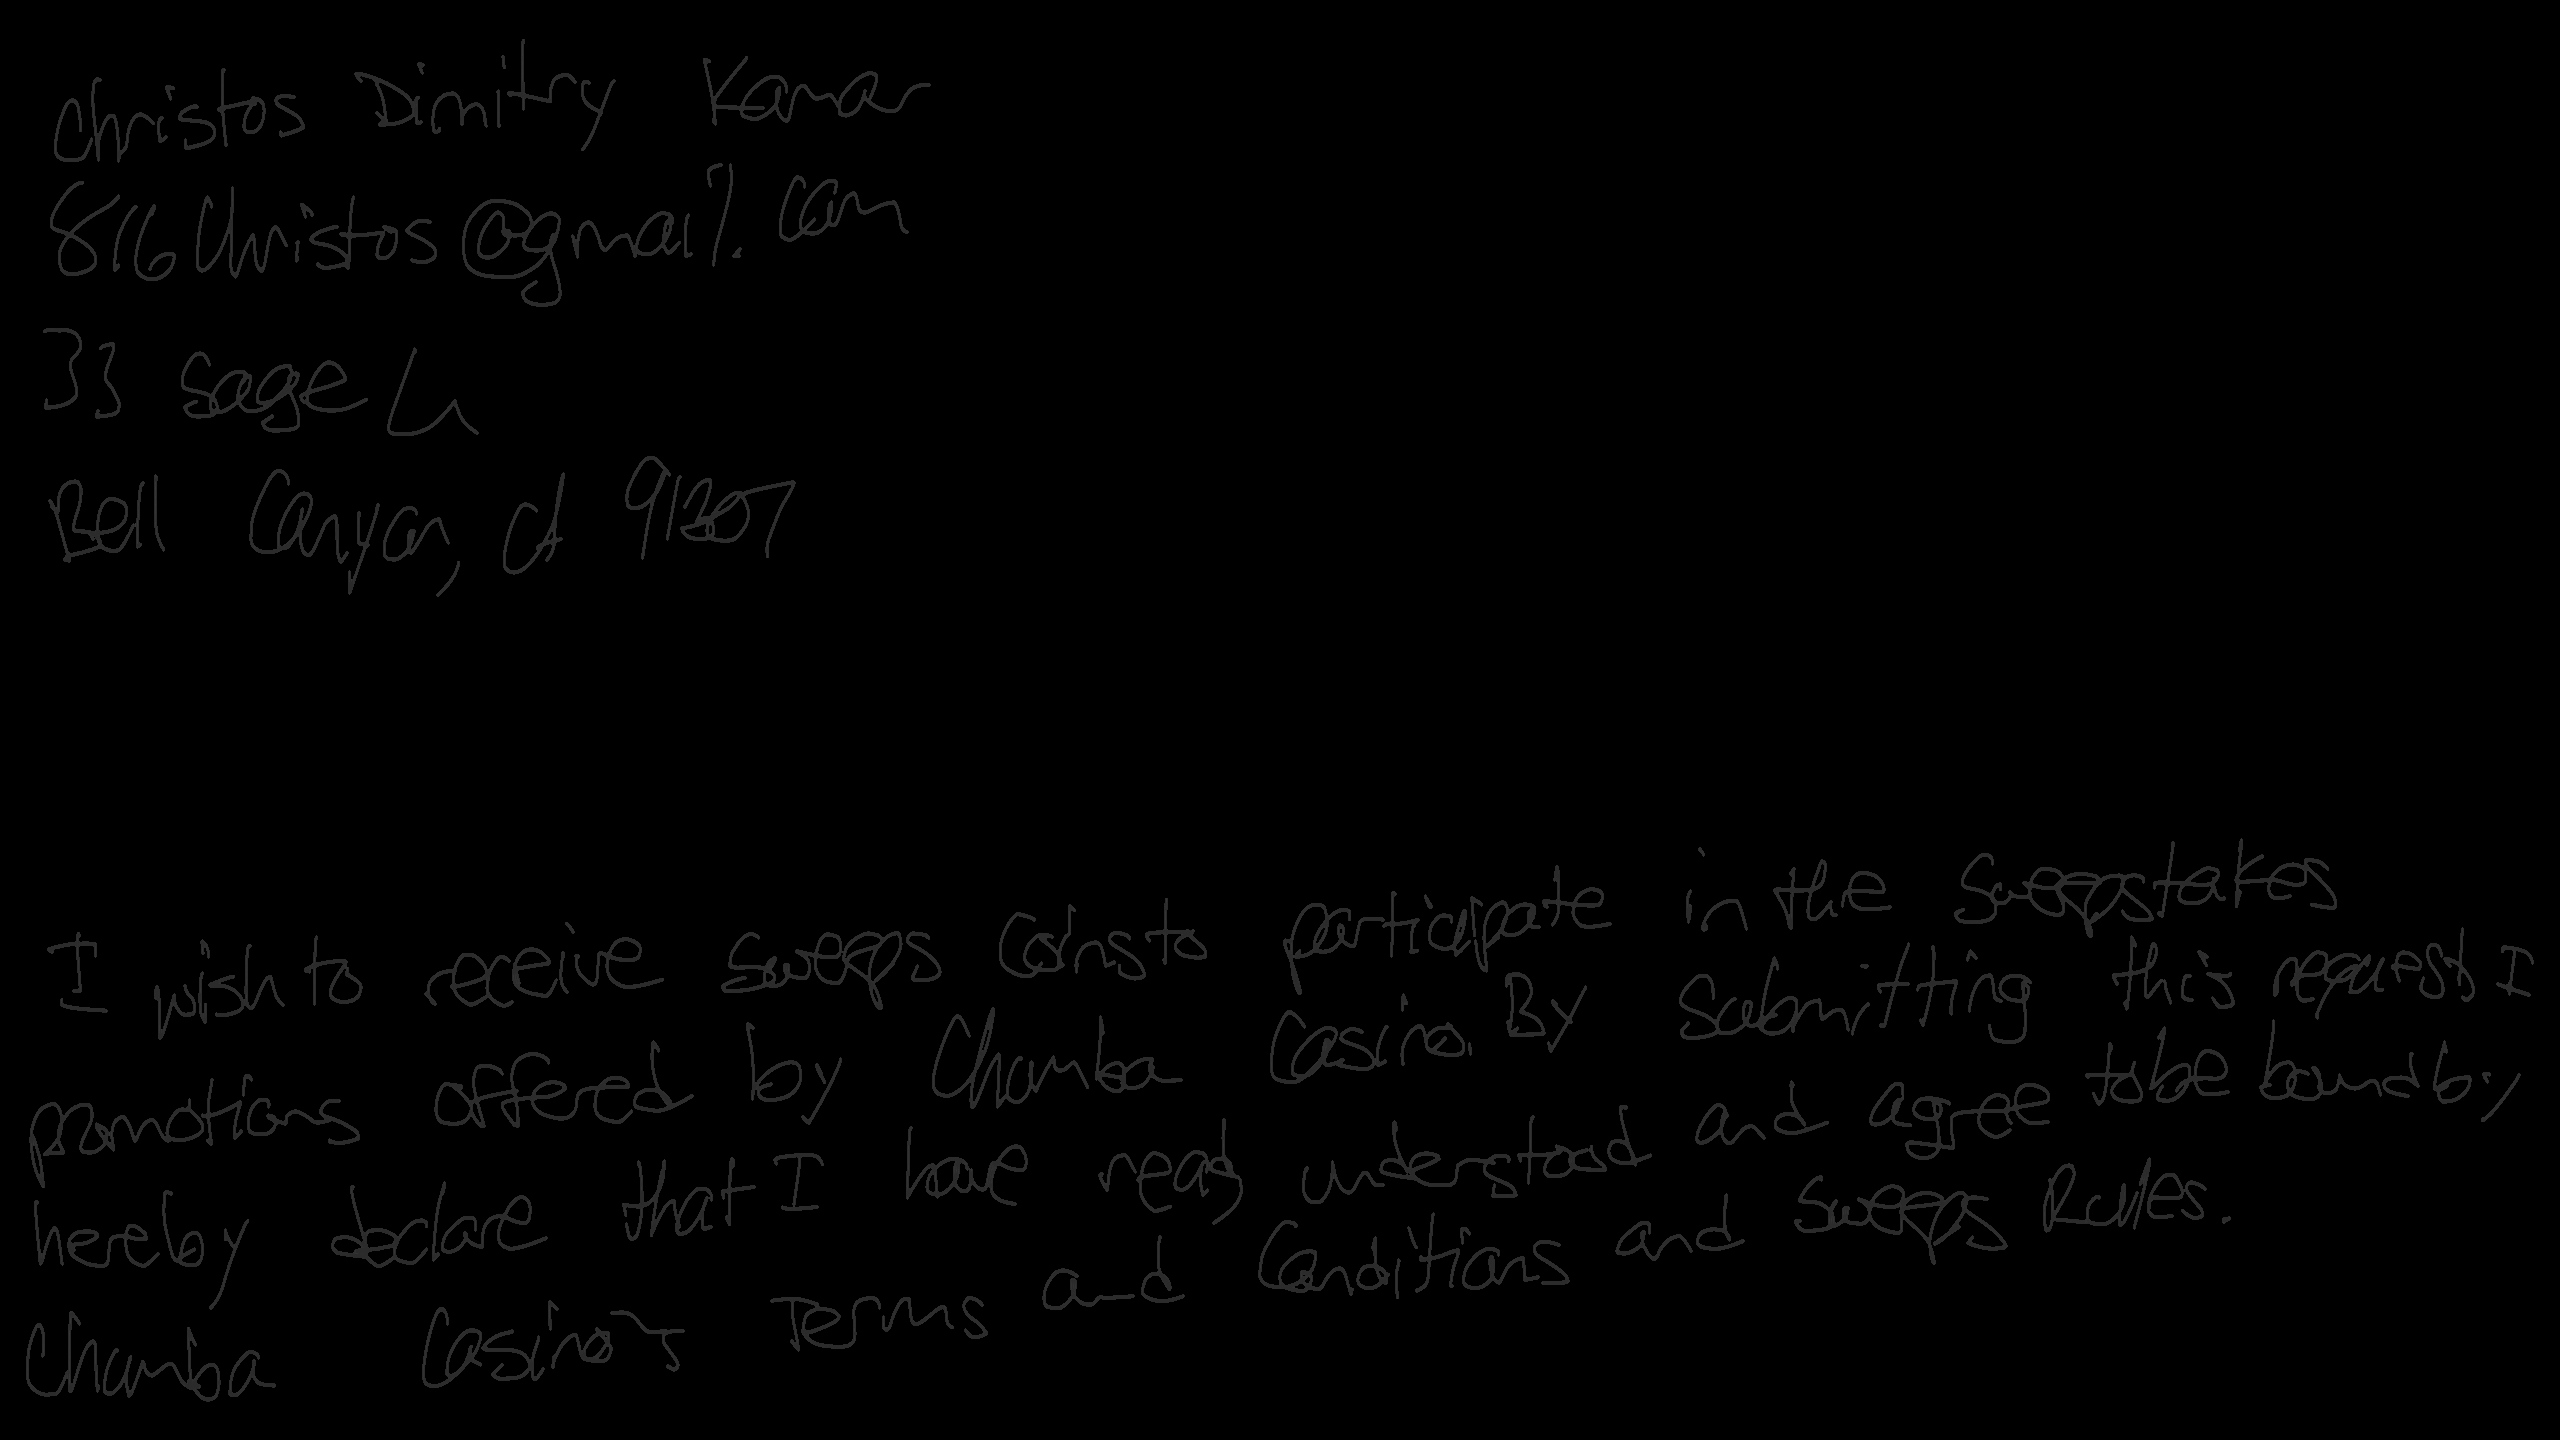 Christos Dimitry Kamar
816Christos@gmail.com
33 Sage Ln
Bell Canyon, CA 91307
I wish to receive sweeps coins to participate in the sweepstakes
promotions offered by Chumba Casino. By submitting this request, I
hereby declare that I have read, understood and agree to be bound by
Chumba Casino's Terms and Conditions and Sweeps Rules.